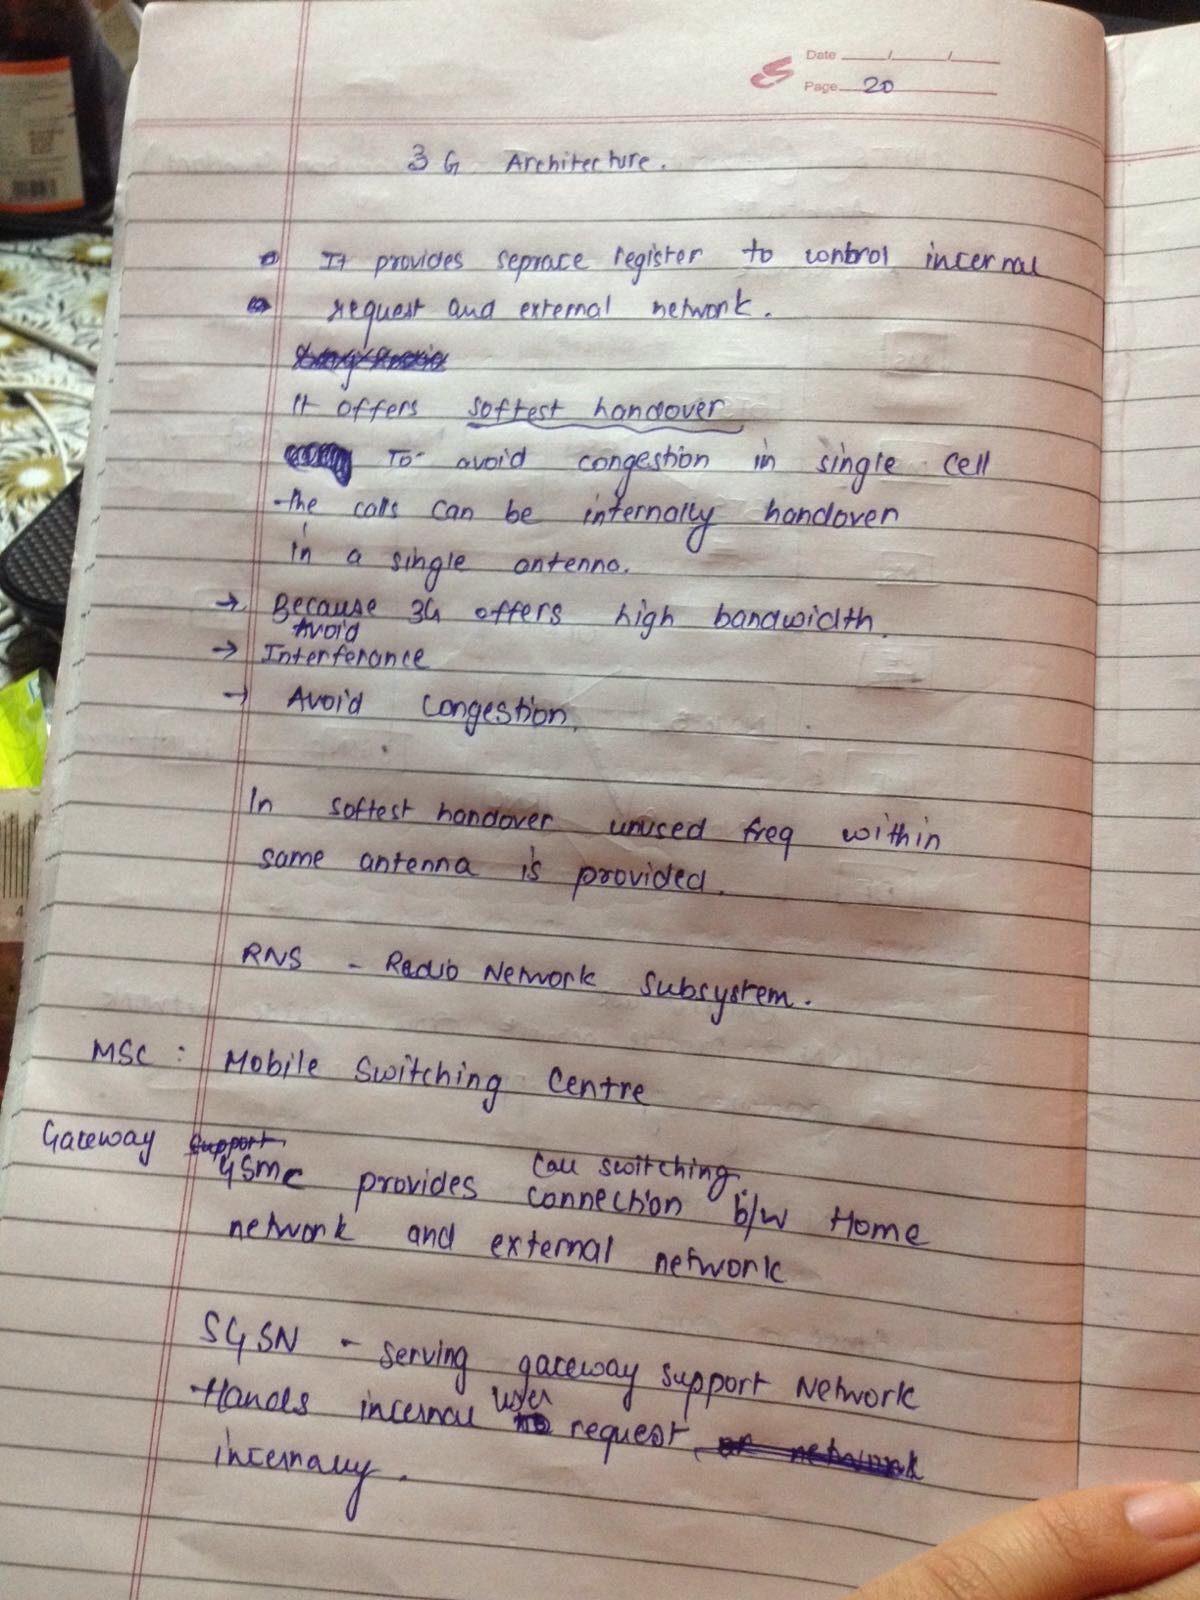 Date / /
Page 20
3 G Architecture.
It provides seprace register to control internal
request and external network.
It offers softest handover
To avoid congestion in single cell
the calls can be internally handover
in a single antenna.
→ Because 3G offers high bandwidth.
Avoid
→ Interferance
→ Avoid Congestion.
In softest handover unused freq within
same antenna is provided.
RNS - Radio Network Subsystem.
MSC : Mobile Switching Centre
Gateway support
Call switching
GSMC provides connection b/w Home
network and external network
SGSN - serving gateway support Network
user
Handls internal request or network
internally.